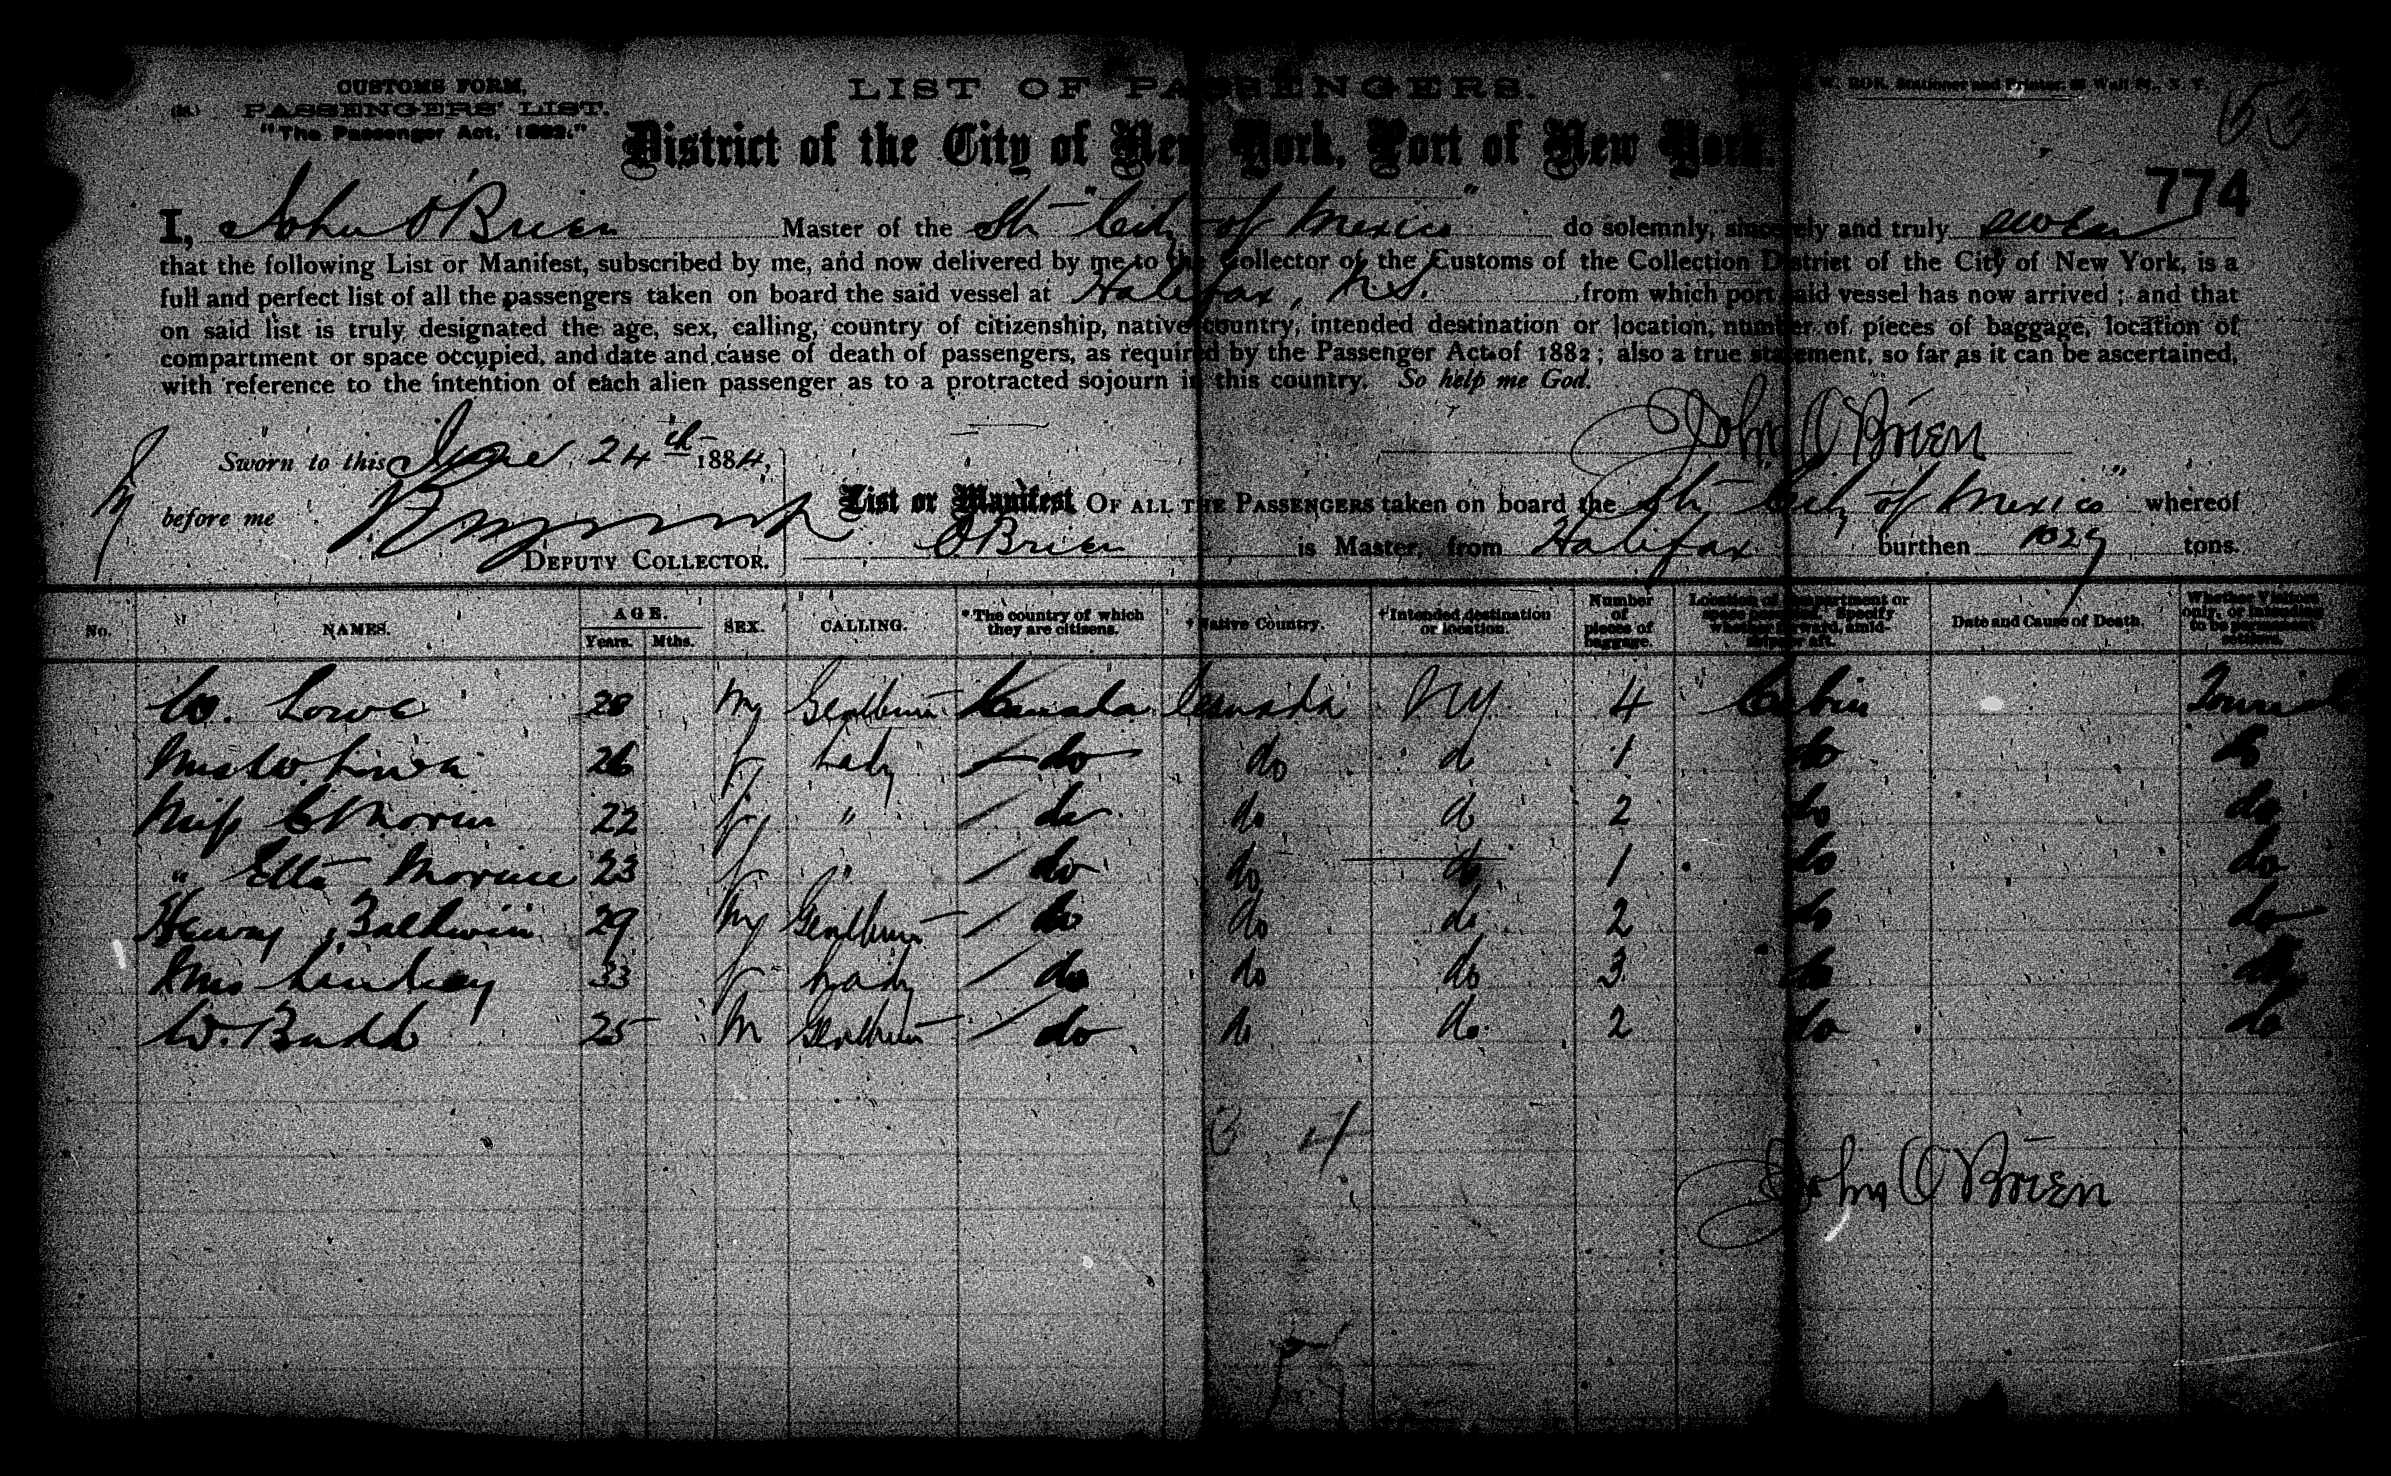 CUSTOMS FORM,
PASSENGERS' LIST.
"The Passenger Act, 1882."
LIST OF PASSENGERS.
W. BOK, Stationer and Printer, Wall St., N. Y.
53
District of the City of New York, Port of New York.
774
I, John O'Brien Master of the Str "City of Mexico" do solemnly, sincerely and truly swear
that the following List or Manifest, subscribed by me, and now delivered by me to the Collector of the Customs of the Collection District of the City of New York, is a
full and perfect list of all the passengers taken on board the said vessel at Halifax, N.S. from which port said vessel has now arrived; and that
on said list is truly designated the age, sex, calling, country of citizenship, native country, intended destination or location, number of pieces of baggage, location of
compartment or space occupied, and date and cause of death of passengers, as required by the Passenger Act of 1882; also a true statement, so far as it can be ascertained,
with reference to the intention of each alien passenger as to a protracted sojourn in this country. So help me God.
John O'Brien
Sworn to this June 24th 1884,
before me
DEPUTY COLLECTOR.
List or Manifest OF ALL THE PASSENGERS taken on board the Str "City of Mexico" whereof
O'Brien is Master, from Halifax burthen 1029 tons.
No. NAMES. AGE. Years. Mths. SEX. CALLING. * The country of which they are citizens. * Native Country. † Intended destination or location. Number of pieces of baggage. Location of compartment or space occupied. Specify whether forward, amidships or aft. Date and Cause of Death. Whether Visitors only, or intending to be permanent settlers.
W. Lowe 28 M Gentleman Canada Canada NY 4 Cabin Tourist
Mrs W. Lowe 26 f Lady do do do 1 do do
Miss C Moren 22 f " do do do 2 do do
" Etta Moren 23 f " do do do 1 do do
Harvey Baldwin 29 M Gentleman do do do 2 do do
Mrs Lindsay 33 f Lady do do do 3 do do
W. Budd 25 M Gentleman do do do 2 do do
3 4
John O'Brien